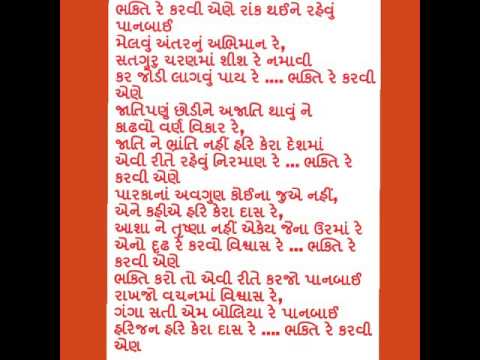 ભક્તિ રે કરવી એણે રાંક થઈને રહેવું
પાનબાઈ
મેલવું અંતરનું અભિમાન રે,
સતગુરુ ચરણમાં શીશ રે નમાવી
કર જોડી લાગવું પાય રે .... ભક્તિ રે કરવી
એણે
જાતિપણું છોડીને અજાતિ થાવું ને
કાઢવો વર્ણ વિકાર રે,
જાતિ ને ભ્રાંતિ નહીં હરિ કેરા દેશમાં
એવી રીતે રહેવું નિરમાણ રે ... ભક્તિ રે
કરવી એણે
પારકાનાં અવગુણ કોઈના જુએ નહીં,
એને કહીએ હરિ કેરા દાસ રે,
આશા ને તૃષ્ણા નહીં એકેય જેના ઉરમાં રે
એનો દૃઢ રે કરવો વિશ્વાસ રે ... ભક્તિ રે
કરવી એણે
ભક્તિ કરો તો એવી રીતે કરજો પાનબાઈ
રાખજો વચનમાં વિશ્વાસ રે,
ગંગા સતી એમ બોલિયા રે પાનબાઈ
હરિજન હરિ કેરા દાસ રે .... ભક્તિ રે કરવી
એણ